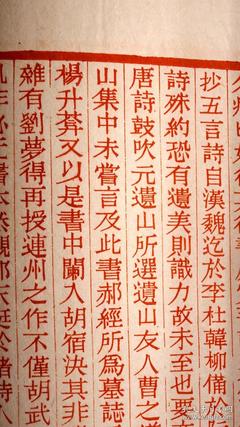 抄五言詩自漢魏迄於李杜韓柳備於
詩殊約恐有遺美則識力故未至也要
唐詩鼓吹元遺山所選遺山友人曹之
山集中未嘗言及此書郝經所爲墓誌
楊升菴又以是書中闌入胡宿決其非
雜有劉夢得再授連州之作不僅胡武